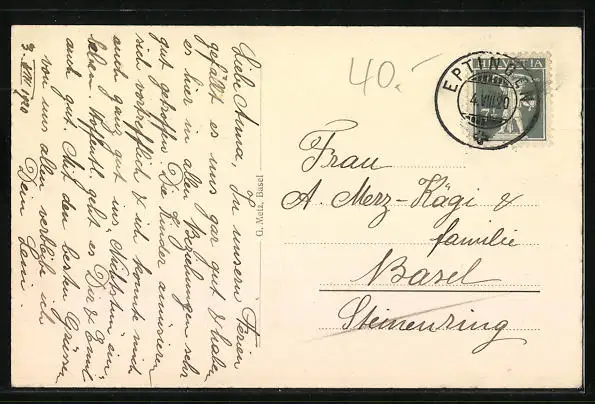 Liebe Anna, In unsern Ferien
gefällt es uns gar gut & haben
es hier in allen Beziehungen sehr
gut getroffen. Die Kinder amüsieren
sich vortrefflich & ich konnte mich
auch ganz gut ins "Nichtstun" ein-
leben. Hoffentl. geht es Dir & Emil
auch gut. Mit den besten Grüssen
von uns allen verbleib ich
3. VIII 1920 Dein Leni.
G. Metz, Basel
40.-
HELVETIA
7½
EPTINGEN
4.VIII.20
Frau
A. Merz-Kägi &
familie
Basel
Steinenring